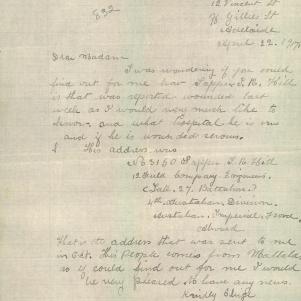 832
12 Vincent St
Adelaide
April 22. 1917
Dear Madam
I was wondering if you could
find out for me how Sapper J. R. Hill
is that was reported wounded last
week as I would very much like to
know. and what hospital he is in
and if he is wounded serious.
His address was
No 3150 Sapper J. R. Hill
Field Company Engineers
27. Battalion
4th Australian Division
Australian Imperial Force
Abroad
That is the address that was sent to me
in Oct. His People comes from Mallala
as if you could find out for me I would
be very pleased to have any news.
Kindly Oblige